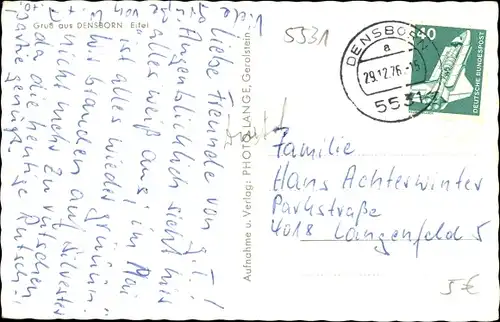 Gruß aus DENSBORN Eifel
Viele
Liebe Freunde von T. T.!
Augenblicklich sieht hier
alles weiß aus, im Mai
ist alles wieder grün!
Wir brauchen an Silvester
nicht mehr zu rutschen
da die heutige Rutsch-
partie genügt.
Aufnahme u. Verlag: PHOTO-LANGE, Gerolstein
5531
DENSBORN
a
29.12.76-15
5531
40
DEUTSCHE BUNDESPOST
Familie
Hans Achterwinter
Parkstraße
4018 Langenfeld 5
5€